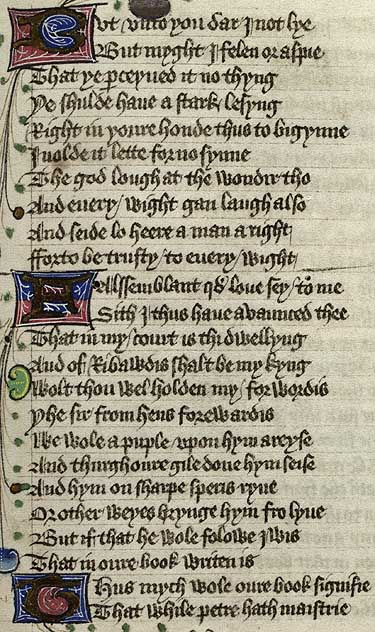 But / vnto you dar I not lye
But myght I felen or aspie
That ye perceyued it no thyng
Ye shulde haue a stark lesyng
Right in youre honde thus to bigynne
I wolde it lette for no synne
The god lough at the wondir tho
And euery / wight gan laugh also
And seide lo heere a man a right
fforto be trusty / to euery / wight
ffalssemblant qd loue sey / to me
Sith I thus haue auaunced thee
That in my / court is thi dwellyng
And of Ribawdis shalt be my kyng
Wolt thou wel holden my / forwordis
Yhe sir from hens forewardis
We wole a puple vpon hym areyse
And thurgh oure gile done hym seise
And hym on sharpe speris ryue
Or other weyes brynge hym fro lyue
But if that he wole folowe Iwis
That in oure book writen is
Thus mych wole oure book signifie
That while petre hath maistrie